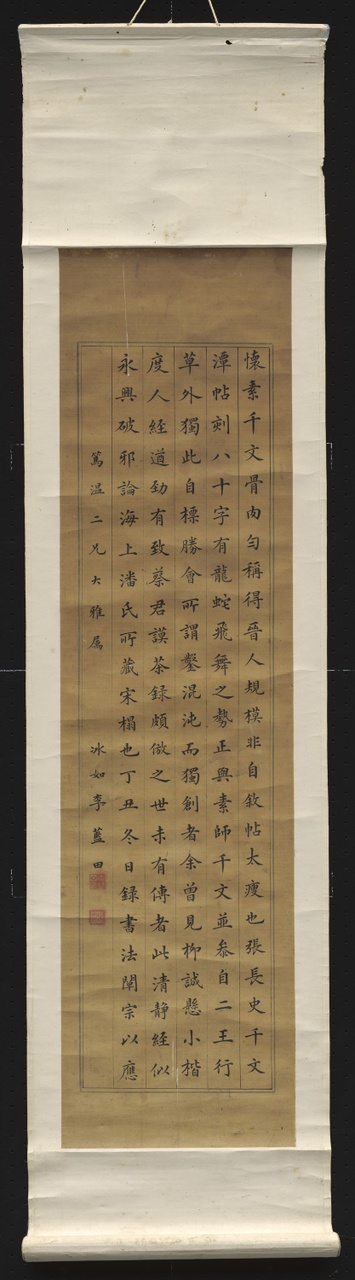 懷素千文骨肉勻稱得晉人規模非自敘帖太瘦也張長史千文
潭帖刻八十字有龍蛇飛舞之勢正與素師千文並叅自二王行
草外獨此自標勝會所謂鑿混沌而獨創者余曾見柳誠懸小楷
度人經遒勁有致蔡君謨茶録頗倣之世未有傳者此清静經似
永興破邪論海上潘氏所藏宋榻也丁丑冬日録書法闡宗以應
篤溫二兄大雅屬
冰如李藍田